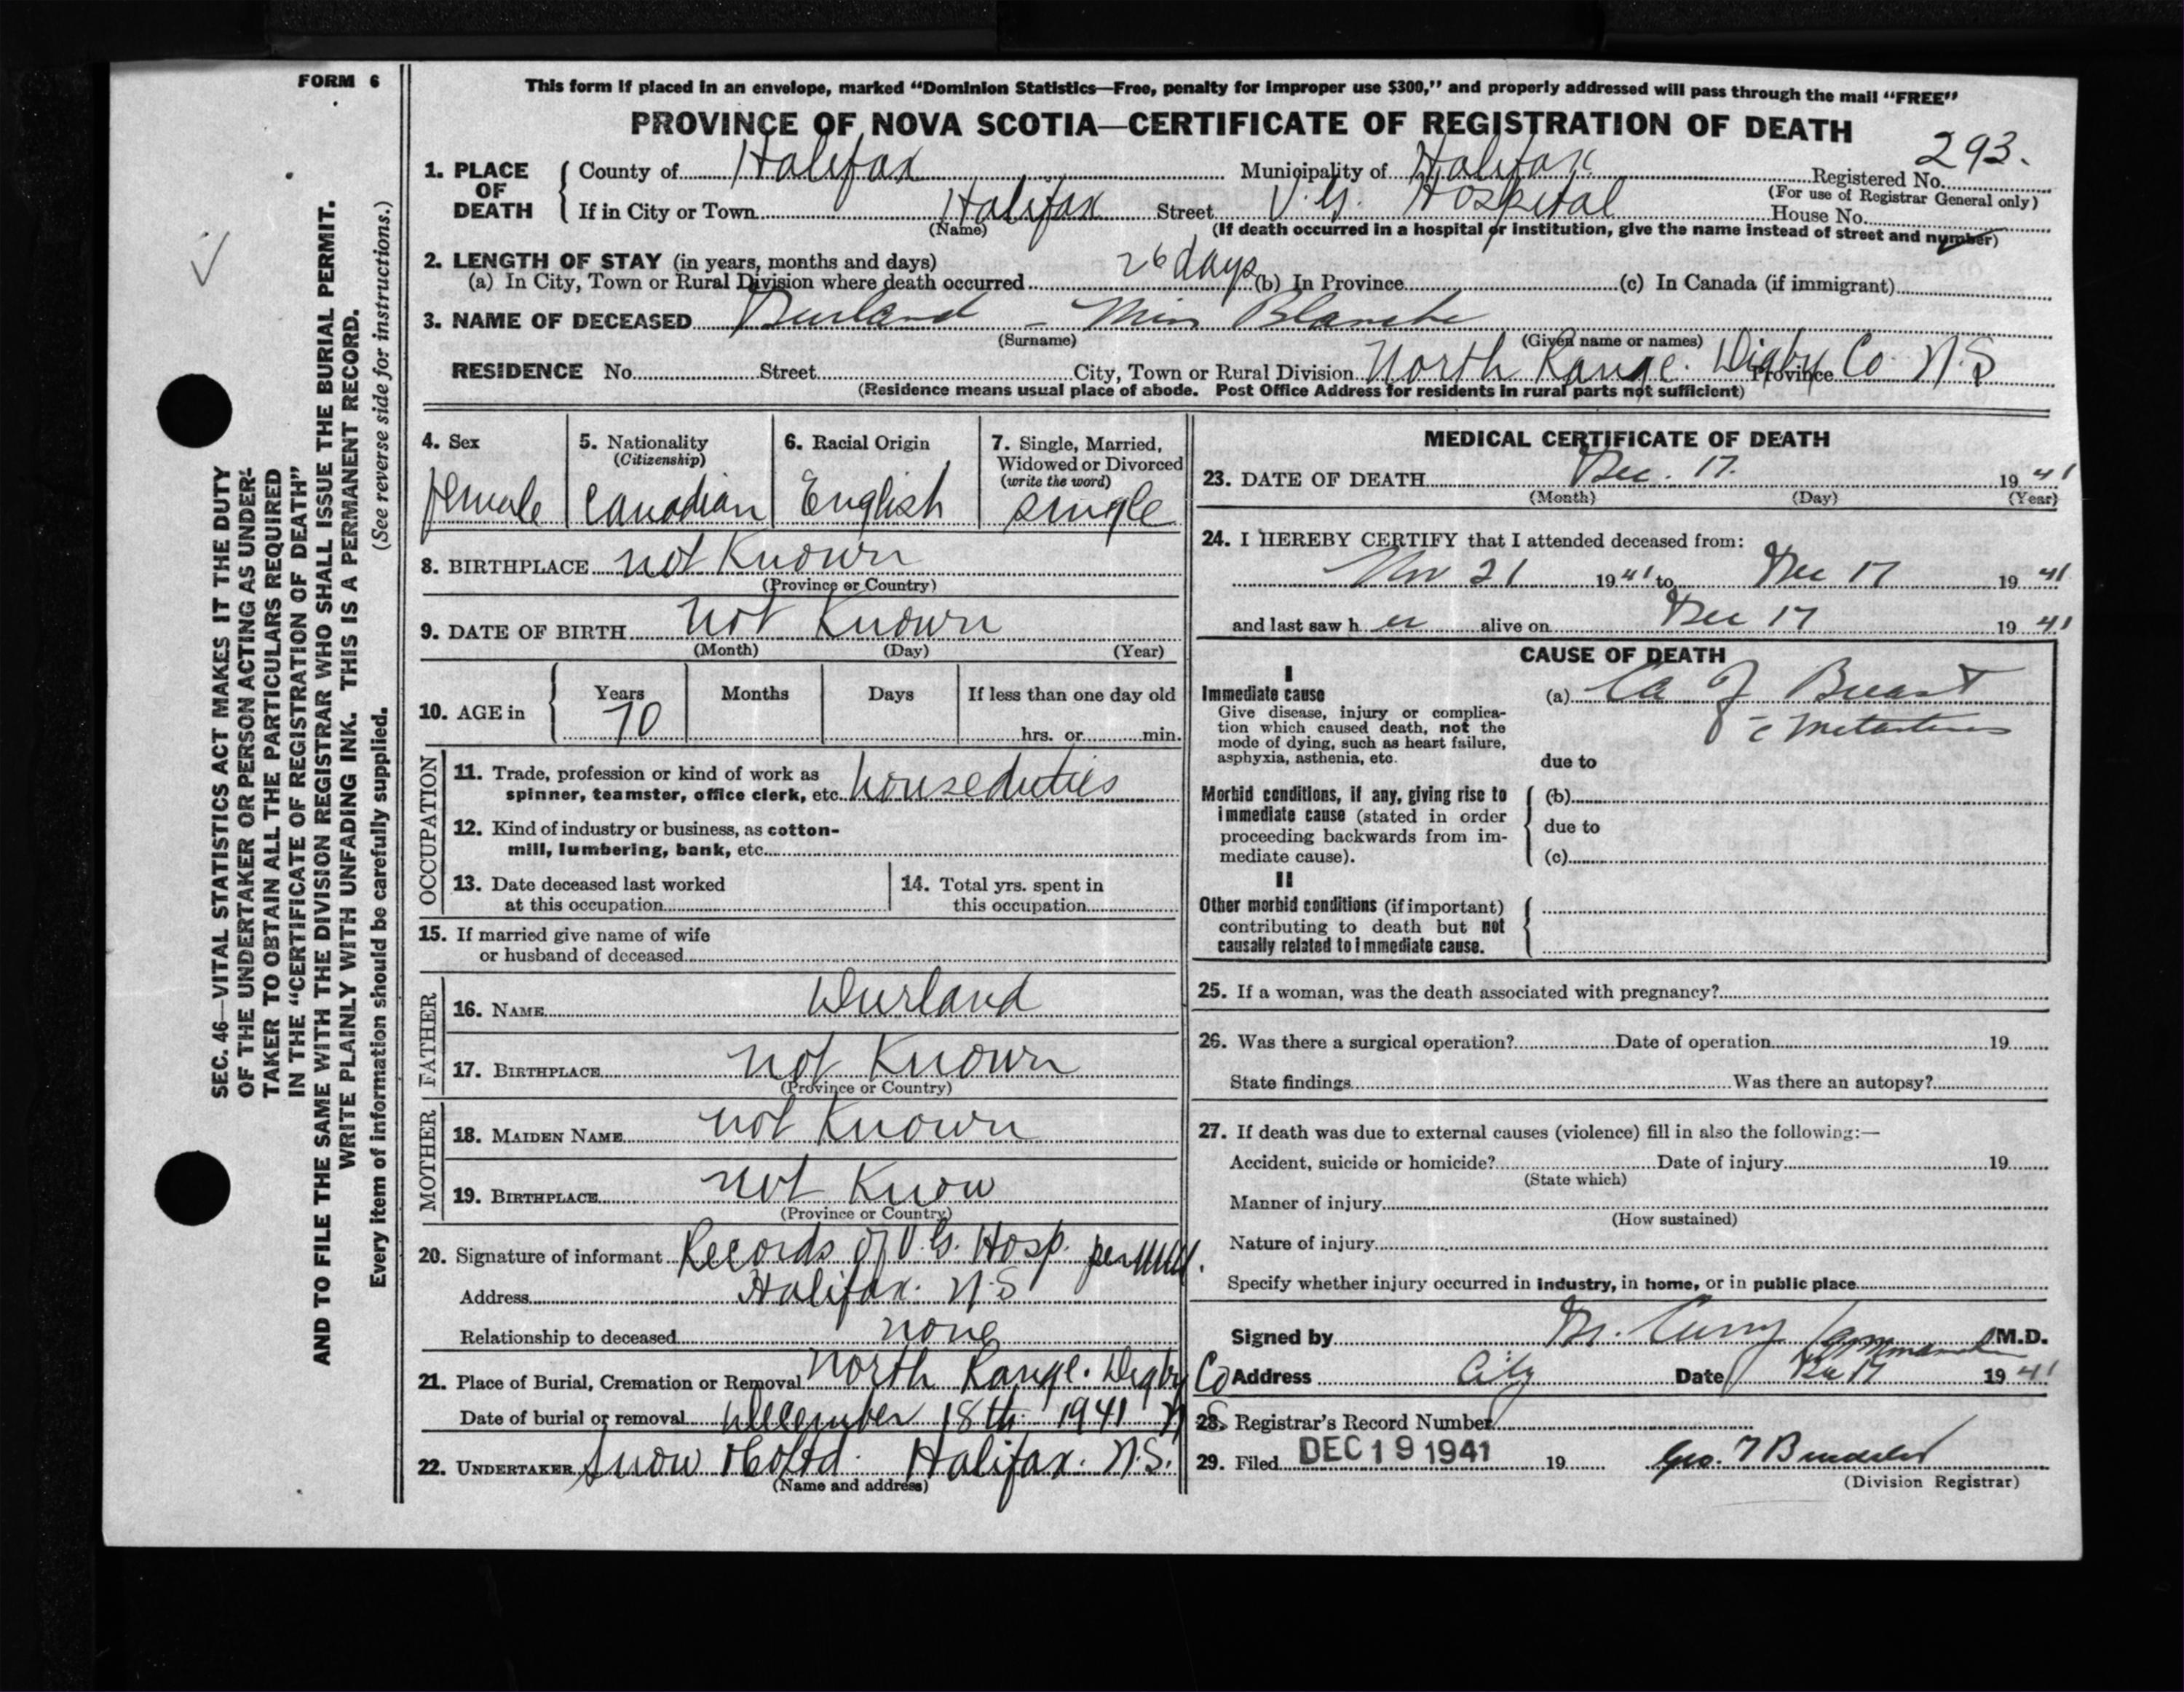 FORM 6
This form if placed in an envelope, marked "Dominion Statistics—Free, penalty for improper use $300," and properly addressed will pass through the mail "FREE"
PROVINCE OF NOVA SCOTIA—CERTIFICATE OF REGISTRATION OF DEATH
293.
1. PLACE OF DEATH { County of Halifax Municipality of Halifax Registered No.
(For use of Registrar General only)
If in City or Town Halifax Street V. G. Hospital House No.
(Name) (If death occurred in a hospital or institution, give the name instead of street and number)
2. LENGTH OF STAY (in years, months and days)
(a) In City, Town or Rural Division where death occurred 26 days (b) In Province (c) In Canada (if immigrant)
3. NAME OF DECEASED Durland - Miss Blanche
(Surname) (Given name or names)
RESIDENCE No. Street City, Town or Rural Division North Range. Digby Co. N.S Province
(Residence means usual place of abode. Post Office Address for residents in rural parts not sufficient)
4. Sex female
5. Nationality (Citizenship) Canadian
6. Racial Origin English
7. Single, Married, Widowed or Divorced (write the word) single
8. BIRTHPLACE not Known
(Province or Country)
9. DATE OF BIRTH not Known
(Month) (Day) (Year)
10. AGE in { Years 70 Months Days If less than one day old
hrs. or min.
OCCUPATION
11. Trade, profession or kind of work as
spinner, teamster, office clerk, etc. houseduties
12. Kind of industry or business, as cotton-
mill, lumbering, bank, etc.
13. Date deceased last worked
at this occupation
14. Total yrs. spent in
this occupation
15. If married give name of wife
or husband of deceased
FATHER
16. NAME Durland
17. BIRTHPLACE not Known
(Province or Country)
MOTHER
18. MAIDEN NAME not Known
19. BIRTHPLACE not Know
(Province or Country)
20. Signature of informant Records of V. G. Hosp. per
Address Halifax. N.S
Relationship to deceased none
21. Place of Burial, Cremation or Removal North Range. Digby Co
Date of burial or removal December 18th. 1941 N S
22. UNDERTAKER Snow & Co Ltd. Halifax. N.S.
(Name and address)
MEDICAL CERTIFICATE OF DEATH
23. DATE OF DEATH Dec. 17. 1941
(Month) (Day) (Year)
24. I HEREBY CERTIFY that I attended deceased from:
Nov 21 1941 to Dec 17 1941
and last saw her alive on Dec 17 1941
CAUSE OF DEATH
I
Immediate cause
Give disease, injury or complica-
tion which caused death, not the
mode of dying, such as heart failure,
asphyxia, asthenia, etc.
(a) Ca of Breast
c̄ Metastases
due to
Morbid conditions, if any, giving rise to
immediate cause (stated in order
proceeding backwards from im-
mediate cause).
(b)
due to
(c)
II
Other morbid conditions (if important)
contributing to death but not
causally related to immediate cause.
25. If a woman, was the death associated with pregnancy?
26. Was there a surgical operation? Date of operation 19
State findings Was there an autopsy?
27. If death was due to external causes (violence) fill in also the following:—
Accident, suicide or homicide? Date of injury 19
(State which)
Manner of injury
(How sustained)
Nature of injury
Specify whether injury occurred in industry, in home, or in public place
Signed by Curry M.D.
Address City Date Dec 17 1941
28. Registrar's Record Number
29. Filed DEC 19 1941 19 Geo.
(Division Registrar)
SEC. 46—VITAL STATISTICS ACT MAKES IT THE DUTY
OF THE UNDERTAKER OR PERSON ACTING AS UNDER-
TAKER TO OBTAIN ALL THE PARTICULARS REQUIRED
IN THE "CERTIFICATE OF REGISTRATION OF DEATH"
AND TO FILE THE SAME WITH THE DIVISION REGISTRAR WHO SHALL ISSUE THE BURIAL PERMIT.
WRITE PLAINLY WITH UNFADING INK. THIS IS A PERMANENT RECORD.
Every item of information should be carefully supplied. (See reverse side for instructions.)